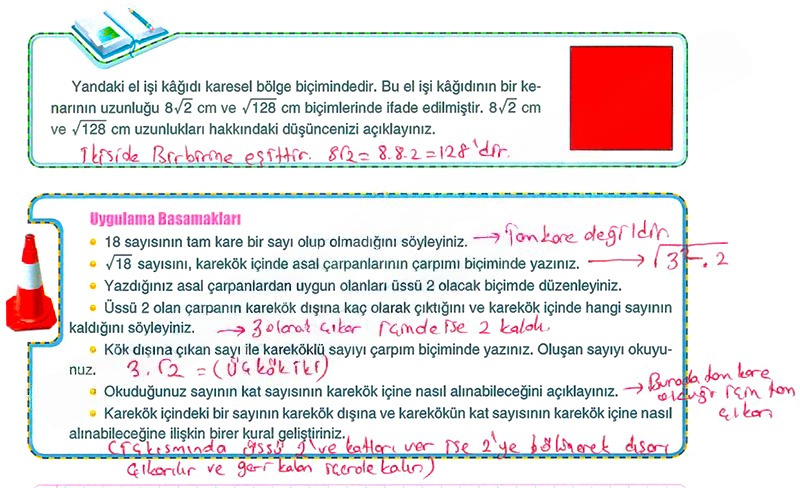 Yandaki el işi kâğıdı karesel bölge biçimindedir. Bu el işi kâğıdının bir ke-
narının uzunluğu 8√2 cm ve √128 cm biçimlerinde ifade edilmiştir. 8√2 cm
ve √128 cm uzunlukları hakkındaki düşüncenizi açıklayınız.
İkiside Birbirine eşittir. 8√2 = 8.8.2 = 128'dir.
Uygulama Basamakları
• 18 sayısının tam kare bir sayı olup olmadığını söyleyiniz. → Tamkare değildir
• √18 sayısını, karekök içinde asal çarpanlarının çarpımı biçiminde yazınız. → √3².2
• Yazdığınız asal çarpanlardan uygun olanları üssü 2 olacak biçimde düzenleyiniz.
• Üssü 2 olan çarpanın karekök dışına kaç olarak çıktığını ve karekök içinde hangi sayının
kaldığını söyleyiniz. → 3 olarak çıkar içinde ise 2 kaldı.
• Kök dışına çıkan sayı ile kareköklü sayıyı çarpım biçiminde yazınız. Oluşan sayıyı okuyu-
nuz. 3.√2 = (Üç kök iki)
• Okuduğunuz sayının kat sayısının karekök içine nasıl alınabileceğini açıklayınız. → Burada tam kare
olduğu için tam
çıkar
• Karekök içindeki bir sayının karekök dışına ve karekökün kat sayısının karekök içine nasıl
alınabileceğine ilişkin birer kural geliştiriniz.
üssü 2 ve katları var ise 2'ye bölünerek dışarı
çıkarılır ve geri kalan içerde kalır)